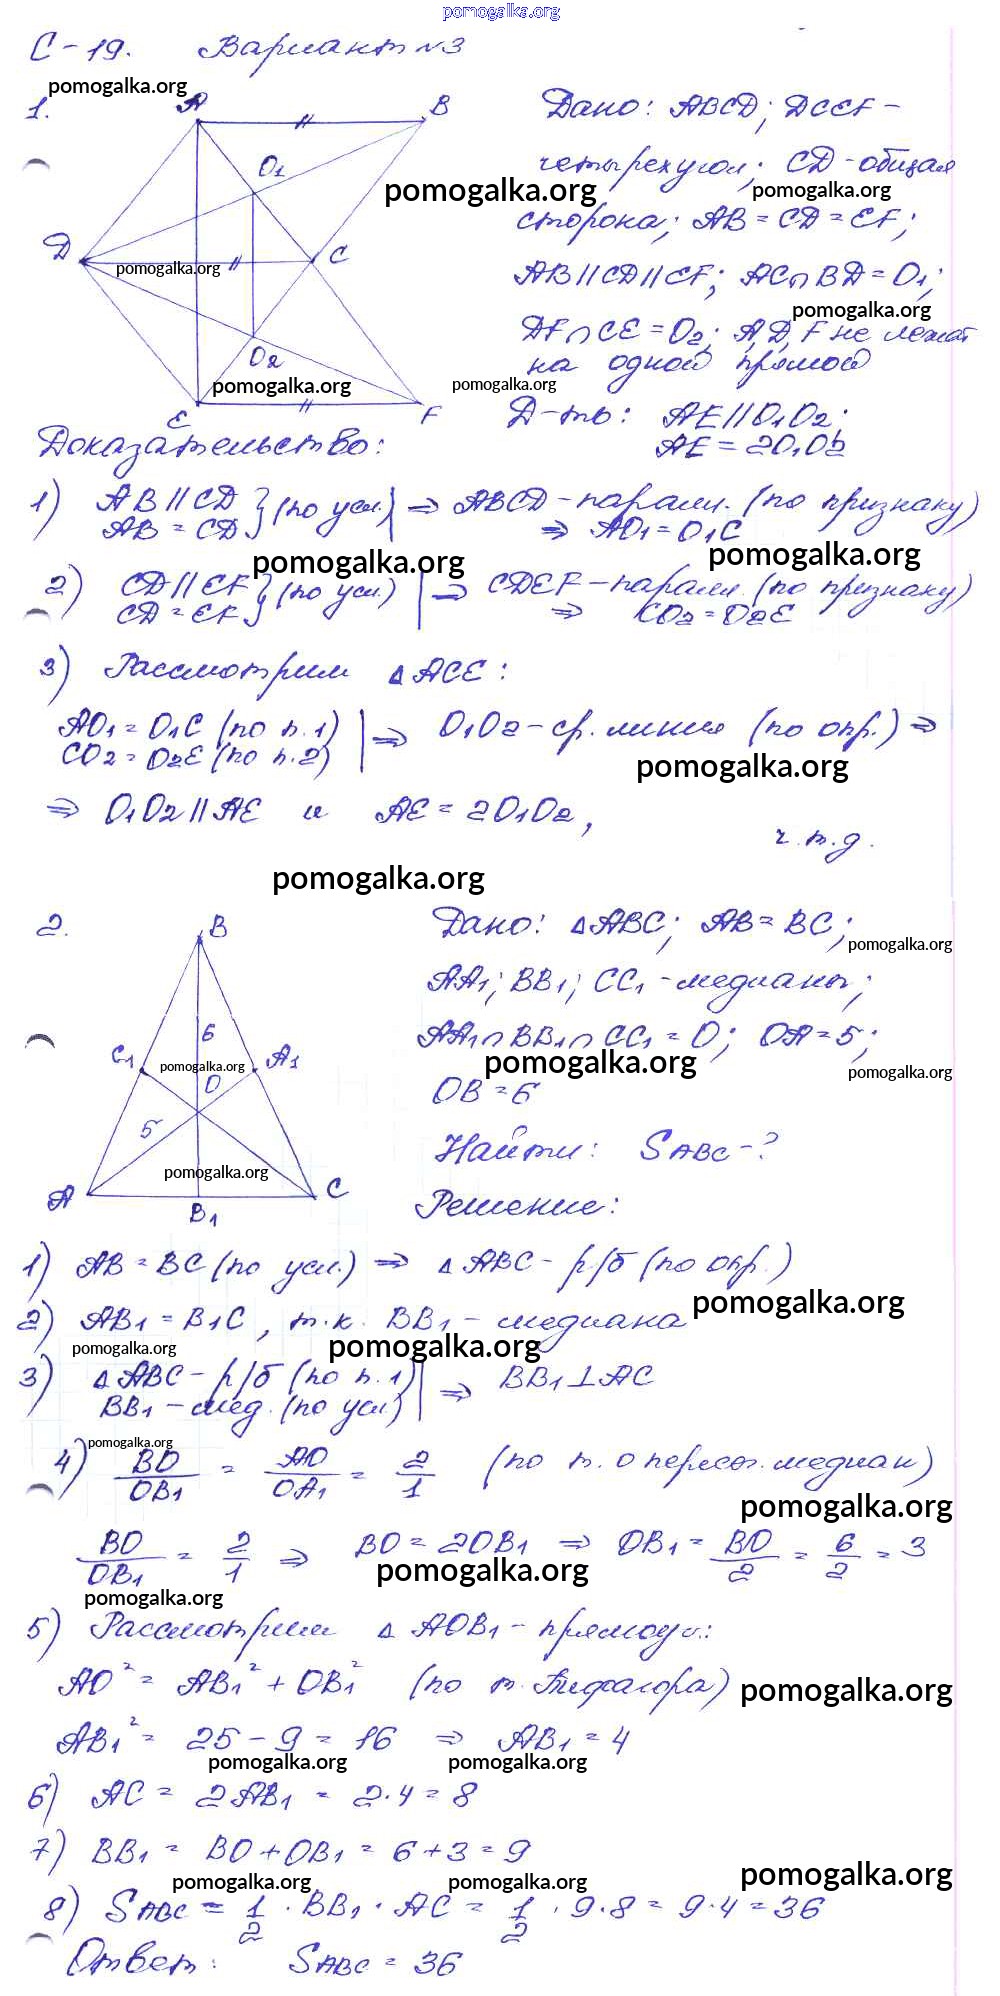 pomogalka.org
С-19. Вариант №3
pomogalka.org
1.
A
B
O1
D
C
O2
E
F
pomogalka.org
pomogalka.org
Дано: ABCD; DCEF -
четырехугол; CD - общая
pomogalka.org
pomogalka.org
сторона; AB = CD = EF;
AB || CD || EF; AC ∩ BD = O1;
pomogalka.org
DF ∩ CE = O2; A, D, F не лежат
на одной прямой
pomogalka.org
Д-ть: AE || O1O2;
AE = 2O1O2
Доказательство:
1) AB || CD
AB = CD } (по усл.) | ⇒ ABCD - паралл. (по признаку)
⇒ AO1 = O1C
pomogalka.org
pomogalka.org
2) CD || EF
CD = EF } (по усл.) | ⇒ CDEF - паралл. (по признаку)
⇒ CO2 = O2E
3) Рассмотрим Δ ACE:
AO1 = O1C (по п. 1)
CO2 = O2E (по п. 2) | ⇒ O1O2 - ср. линия (по опр.) ⇒
pomogalka.org
⇒ O1O2 || AE и AE = 2O1O2,
ч.т.д.
pomogalka.org
2.
B
6
C1
A1
O
5
A
C
B1
pomogalka.org
pomogalka.org
Дано: Δ ABC; AB = BC;
pomogalka.org
AA1; BB1; CC1 - медианы;
AA1 ∩ BB1 ∩ CC1 = O; OA = 5;
pomogalka.org
pomogalka.org
OB = 6
Найти: SABC - ?
Решение:
1) AB = BC (по усл.) ⇒ Δ ABC - р/б (по опр.)
pomogalka.org
2) AB1 = B1C, т.к. BB1 - медиана
pomogalka.org
pomogalka.org
3) Δ ABC - р/б (по п. 1)
BB1 - мед. (по усл) | ⇒ BB1 ⊥ AC
pomogalka.org
4) BO/OB1 = AO/OA1 = 2/1 (по т. о перес. медиан)
pomogalka.org
BO/OB1 = 2/1 ⇒ BO = 2OB1 ⇒ OB1 = BO/2 = 6/2 = 3
pomogalka.org
pomogalka.org
5) Рассмотрим Δ AOB1 - прямоуг.:
AO² = AB1² + OB1² (по т. Пифагора)
pomogalka.org
AB1² = 25 - 9 = 16 ⇒ AB1 = 4
pomogalka.org
pomogalka.org
6) AC = 2AB1 = 2·4 = 8
7) BB1 = BO + OB1 = 6 + 3 = 9
pomogalka.org
pomogalka.org
pomogalka.org
8) SABC = 1/2 · BB1 · AC = 1/2 · 9·8 = 9·4 = 36
Ответ: SABC = 36